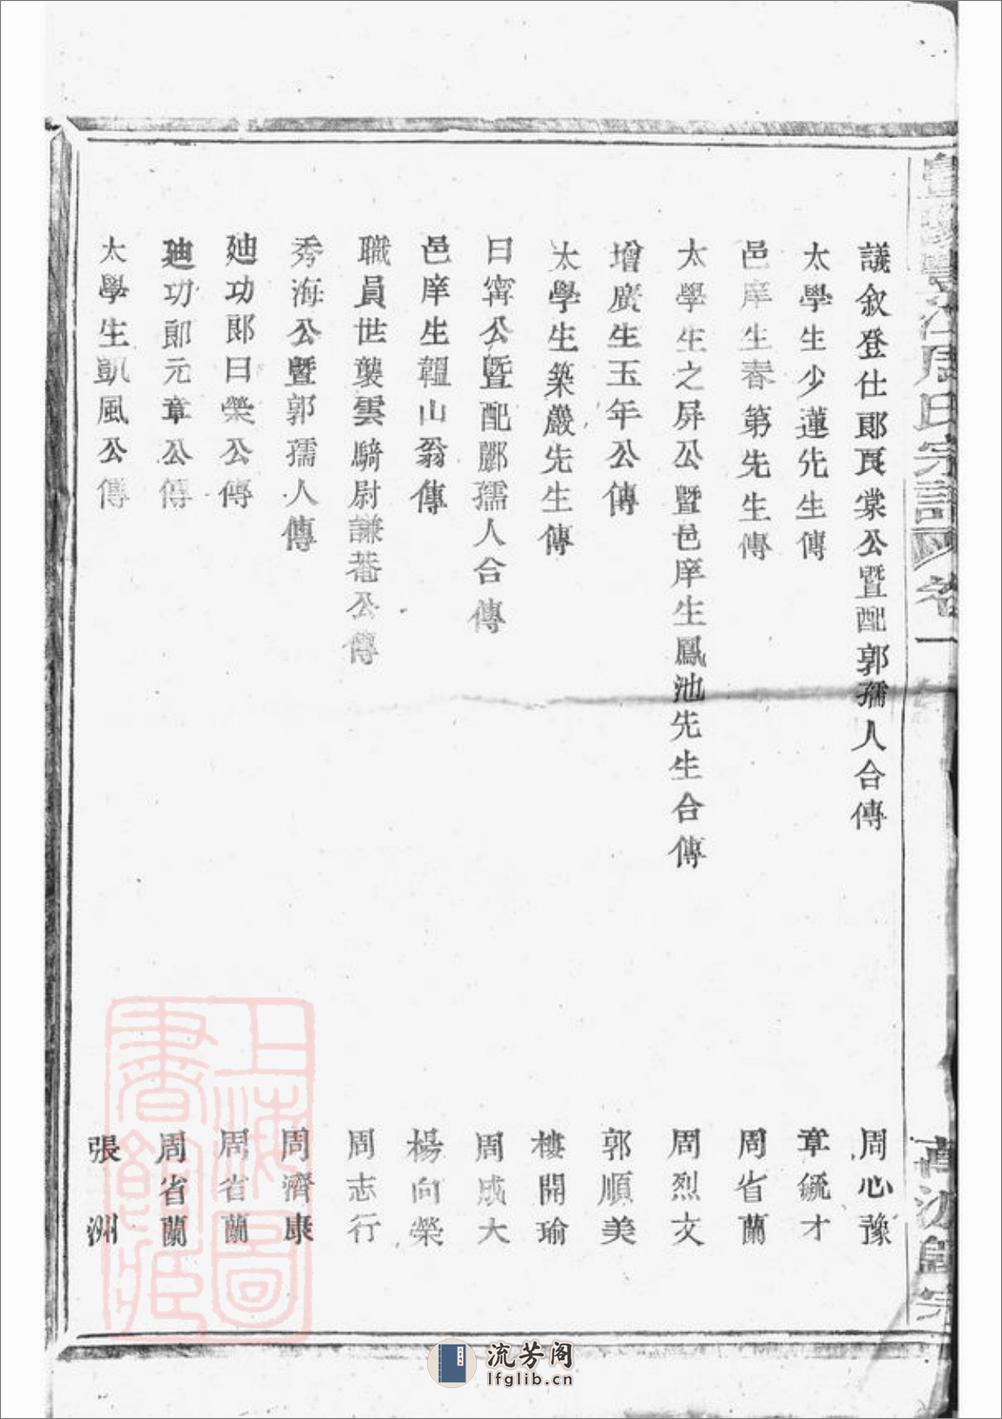 議敘登仕郎良棠公暨配郭孺人合傳 周心豫
太學生少蓮先生傳 章毓才
邑庠生春第先生傳 周省蘭
太學生之屏公暨邑庠生鳳池先生合傳 周烈文
增廣生玉年公傳 郭順美
太學生築巖先生傳 樓開瑜
日甯公暨配酈孺人合傳 周成大
邑庠生韞山翁傳 楊向榮
職員世襲雲騎尉謙菴公傳 周志行
秀海公暨郭孺人傳 周濟康
廸功郎日榮公傳 周省蘭
廸功郎元章公傳 周省蘭
太學生凱風公傳 張洲
江周氏宗譜 卷一
上海圖書館藏
流芳阁
lfglib.cn